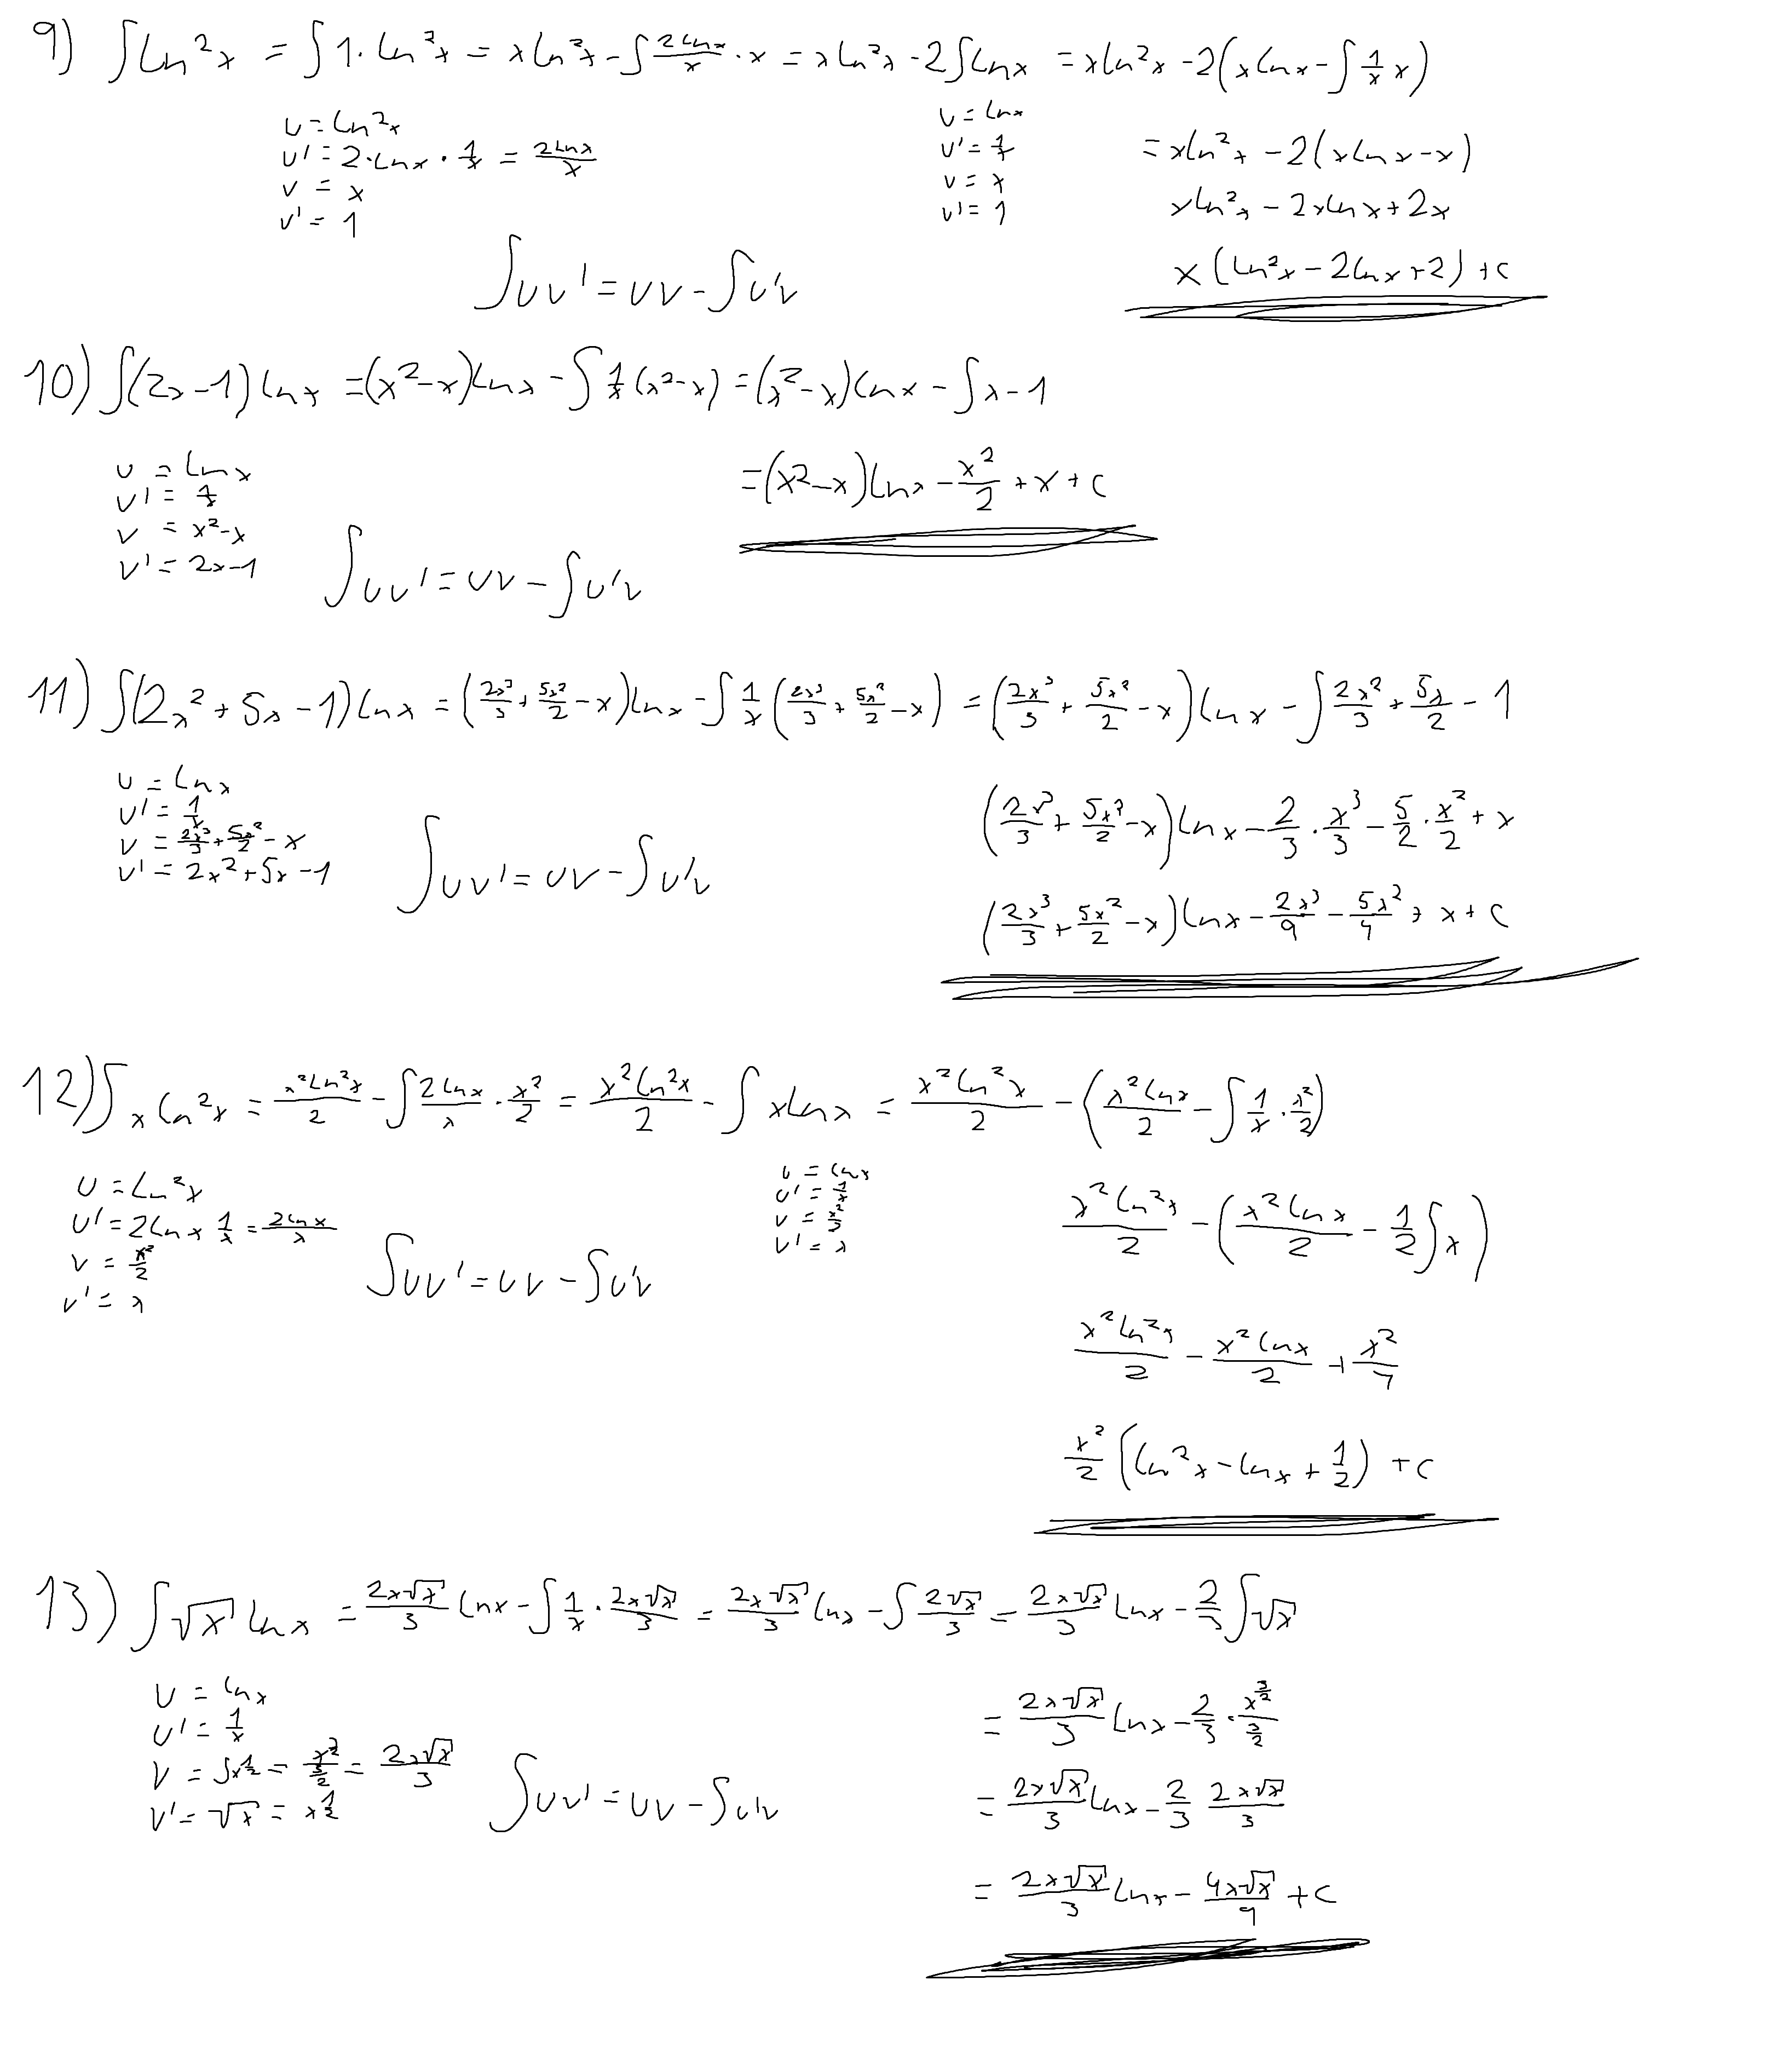 9) ∫ln²x = ∫1·ln²x = xln²x - ∫(2lnx/x)·x = xln²x - 2∫lnx = xln²x - 2(xlnx - ∫(1/x)x)
u = ln²x
u' = 2·lnx·1/x = 2lnx/x
v = x
v' = 1
u = lnx
u' = 1/x
v = x
v' = 1
= xln²x - 2(xlnx - x)
xln²x - 2xlnx + 2x
x(ln²x - 2lnx + 2) + c
∫uv' = uv - ∫u'v
10) ∫(2x-1)lnx = (x²-x)lnx - ∫1/x(x²-x) = (x²-x)lnx - ∫x-1
u = lnx
u' = 1/x
v = x²-x
v' = 2x-1
∫uv' = uv - ∫u'v
= (x²-x)lnx - x²/2 + x + c
11) ∫(2x²+5x-1)lnx = (2x³/3 + 5x²/2 - x)lnx - ∫1/x(2x³/3 + 5x²/2 - x) = (2x³/3 + 5x²/2 - x)lnx - ∫2x²/3 + 5x/2 - 1
u = lnx
u' = 1/x
v = 2x³/3 + 5x²/2 - x
v' = 2x²+5x-1
∫uv' = uv - ∫u'v
(2x³/3 + 5x²/2 - x)lnx - 2/3·x³/3 - 5/2·x²/2 + x
(2x³/3 + 5x²/2 - x)lnx - 2x³/9 - 5x²/4 + x + c
12) ∫xln²x = x²ln²x/2 - ∫2lnx/x·x²/2 = x²ln²x/2 - ∫xlnx = x²ln²x/2 - (x²lnx/2 - ∫1/x·x²/2)
u = ln²x
u' = 2lnx 1/x = 2lnx/x
v = x²/2
v' = x
∫uv' = uv - ∫u'v
u = lnx
u' = 1/x
v = x²/2
v' = x
x²ln²x/2 - (x²lnx/2 - 1/2∫x)
x²ln²x/2 - x²lnx/2 + x²/4
x²/2(ln²x - lnx + 1/2) + c
13) ∫√x lnx = 2x√x/3 lnx - ∫1/x·2x√x/3 = 2x√x/3 lnx - ∫2√x/3 = 2x√x/3 lnx - 2/3∫√x
u = lnx
u' = 1/x
v = ∫x^(1/2) = x^(3/2)/(3/2) = 2x√x/3
v' = √x = x^(1/2)
∫uv' = uv - ∫u'v
= 2x√x/3 lnx - 2/3·x^(3/2)/(3/2)
= 2x√x/3 lnx - 2/3 2x√x/3
= 2x√x/3 lnx - 4x√x/9 + c